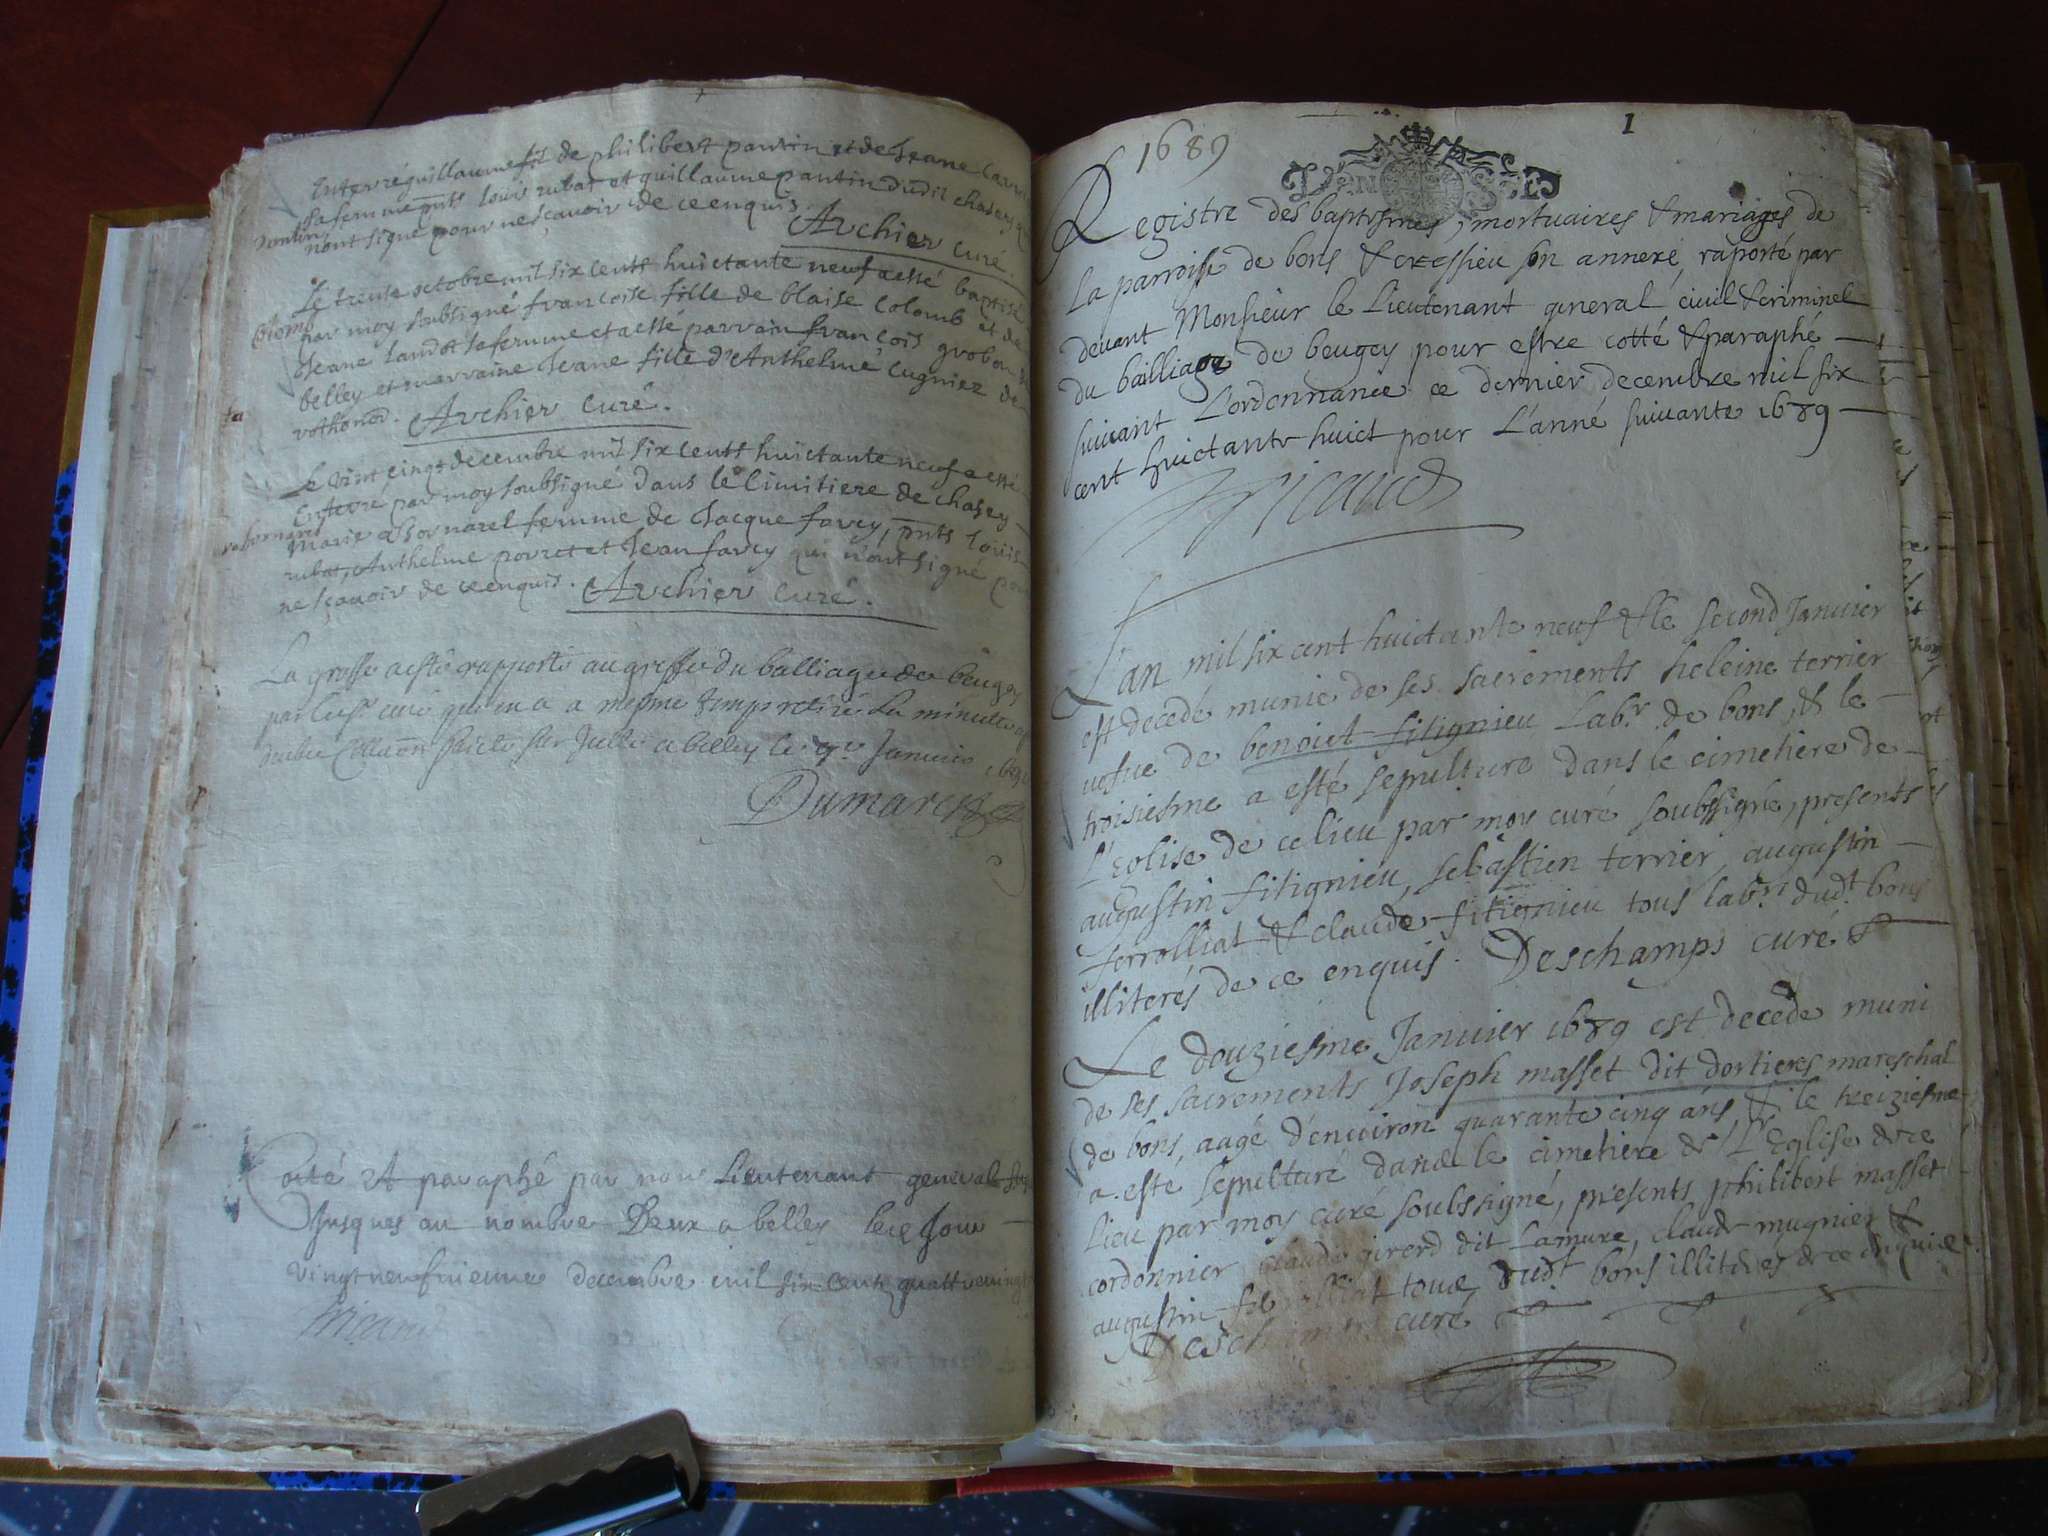 Enterré guillaume fil de philibert pantin et de Jeane
sa femme pnts loüis rubat et guillaume pantin dudit chasey qui
pantin
nont signé pour ne sçavoir de ce enquis.
Archier curé.
Le trente octobre mil six cents huictante neuf a esté baptisé
Colomb
par moy soubsigné francoise fille de blaise Colomb et de
Jeane landot sa femme et a esté parrain francois grobon de
belley et marraine Jeane fille d'Anthelme Cugniez de
vothonod. Archier Curé.
Le vint cinq decembre mil six cents huictante neuf a esté
Enterré par moy soubsigné dans le cimitiere de chasey
rabornarel
Marie rabornarel femme de Jacque favey, pnts loüis
rubat, Anthelme porret et Jean favey qui n'ont signé pour
ne sçavoir de ce enquis. Archier Curé.
La grosse a esté rapporté au greffe du balliage de beugey
par led. curé qui en a a mesme temp retiré La minutte
deube Collaon faicte sur Jcelle a belley le 9e Janvier
Dumarest
Cotté Et paraphé par nous Lieutenant general
Jusques au nombre Deux a belley ce Jour
vingt neufvieme decembre mil six cents quattrevingt
1
1689
Registre des baptesmes, mortuaires & mariages de
La parroisse de bons & cressieu son annexé, raporté par
devant Monsieur le Lieutenant general civil & criminel
du bailliage de beugey pour estre cotté & paraphé
suivant L'ordonnance ce dernier decembre mil six
cent huictante huict pour L'anné suivante 1689
Tricaud
L'an mil six cent huictante neuf & le second Janvier
est decedé munie de ses sacrements heleine terrier
vefue de benoict fitignieu Labr de bons, & le
troisiesme a esté sepulture dans le cimetiere de
L'Eglise de ce lieu par moy curé soubssigné, presents
augustin fitignieu, sebastien terrier, augustin
ferrolliat & claude fitignieu tous labrs dudt bons
illiterés de ce enquis. Deschamps curé
Le douziesme Janvier 1689 est decedé muni
de ses sacrements Joseph masset dit dortieres mareschal
de bons, aagé d'environ quarante cinq ans, & le treiziesme
a esté sepulturé dans le cimetiere de L'Eglise de ce
Lieu par moy curé soubssigné, presents philibert masset
cordonnier claude girerd dit Lamure, claude mugnier &
augustin ferrolliat tous dudt bons illiterés de ce enquis
Deschamps curé